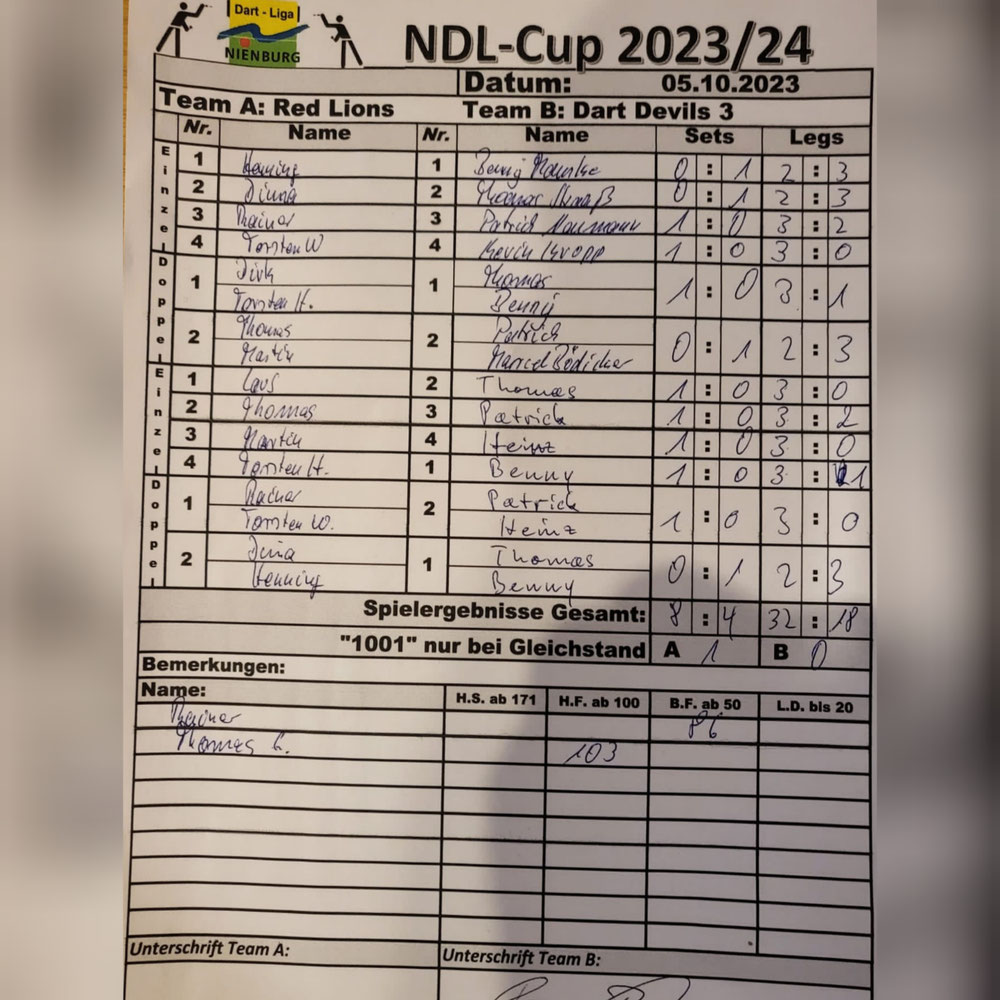 Dart - Liga
NIENBURG
NDL-Cup 2023/24
Datum: 05.10.2023
Team A: Red Lions Team B: Dart Devils 3
Nr. Name Nr. Name Sets Legs
Einzel
1 Henning 1 Benny 0 : 1 2 : 3
2 2 Thomas 0 : 1 2 : 3
3 Rainer 3 Patrick Naumann 1 : 0 3 : 2
4 Torsten W 4 Kevin Kropp 1 : 0 3 : 0
Doppel
1 Dirk 1 Thomas 1 : 0 3 : 1
Torsten H. Benny
2 Thomas 2 Patrick 0 : 1 2 : 3
Martin Marcel Bödicker
Einzel
1 2 Thomas 1 : 0 3 : 0
2 Thomas 3 Patrick 1 : 0 3 : 2
3 Martin 4 Heinz 1 : 0 3 : 0
4 Torsten H. 1 Benny 1 : 0 3 : 1
Doppel
1 Rainer 2 Patrick 1 : 0 3 : 0
Torsten W. Heinz
2 1 Thomas 0 : 1 2 : 3
Henning Benny
Spielergebnisse Gesamt: 8 : 4 32 : 18
"1001" nur bei Gleichstand A 1 B 0
Bemerkungen:
Name: H.S. ab 171 H.F. ab 100 B.F. ab 50 L.D. bis 20
Rainer 86
Thomas 103
Unterschrift Team A: Unterschrift Team B: